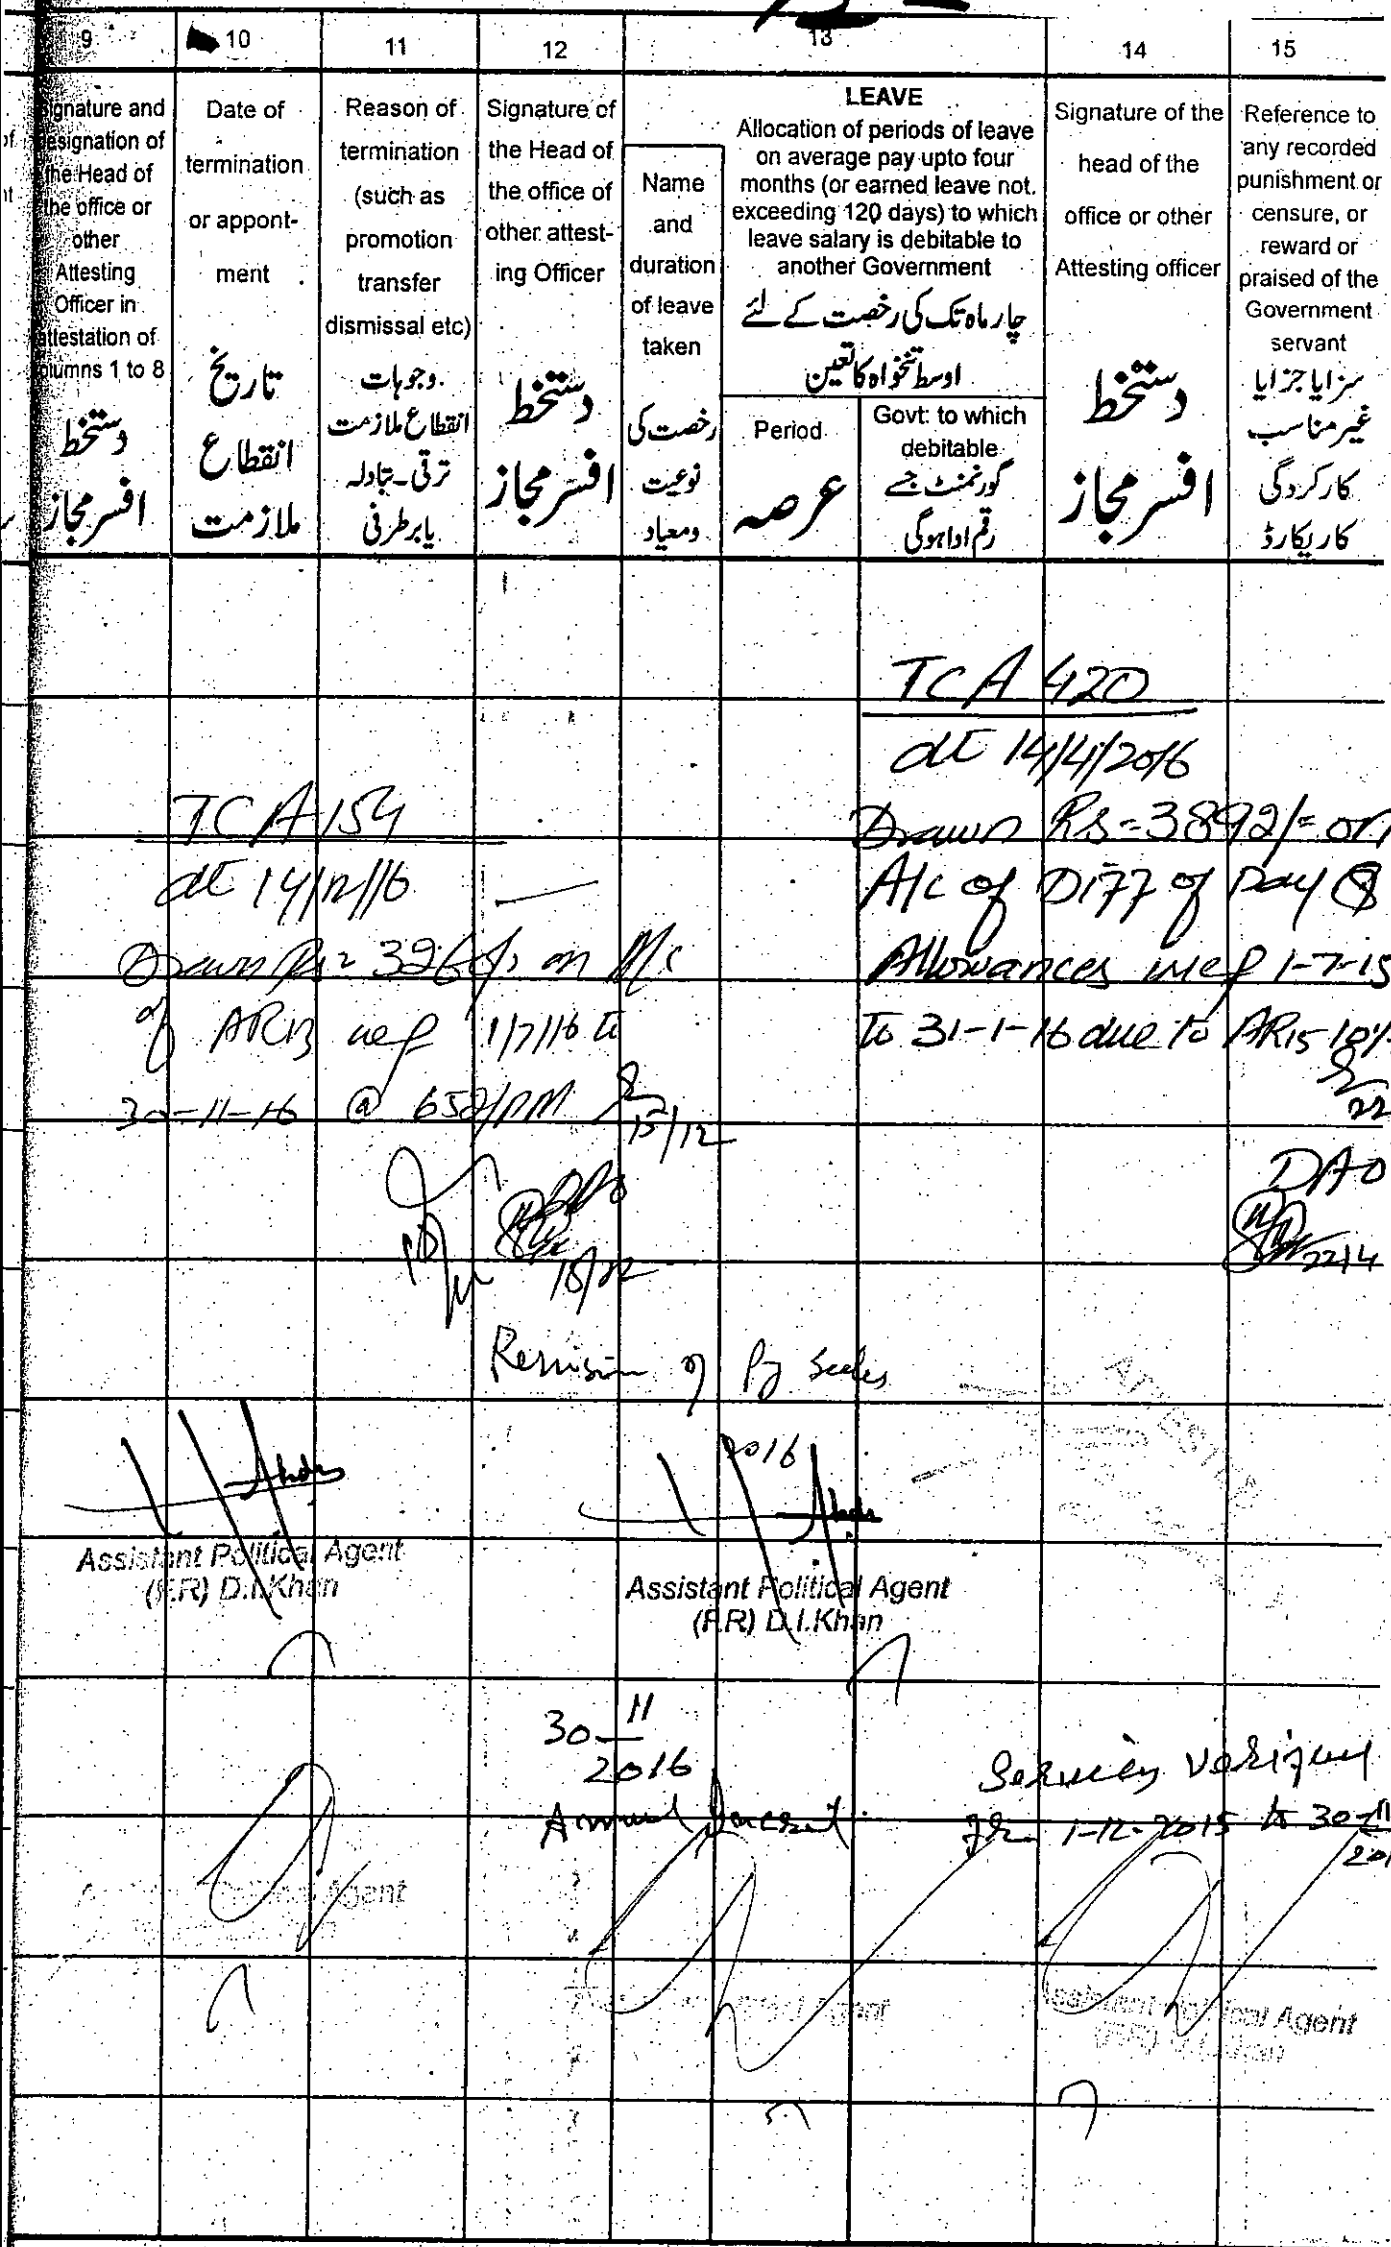 9
10
11
12
13
14
15
Signature and
designation of
the Head of
the office or
other
Attesting
Officer in
attestation of
columns 1 to 8
دستخط
افسر مجاز
Date of
termination
or appont-
ment
تاریخ
انقطاع
ملازمت
Reason of
termination
(such as
promotion
transfer
dismissal etc)
وجوہات
انقطاع ملازمت
ترقی۔تبادلہ
یابرطرفی
Signature of
the Head of
the office of
other attest-
ing Officer
دستخط
افسر مجاز
LEAVE
Name
and
duration
of leave
taken
رخصت کی
نوعیت
ومعیاد
Allocation of periods of leave
on average pay upto four
months (or earned leave not.
exceeding 120 days) to which
leave salary is debitable to
another Government
چار ماہ تک کی رخصت کے لئے
اوسط تنخواہ کا تعین
Period
عرصہ
Govt: to which
debitable
گورنمنٹ جسے
رقم ادا ہوگی
Signature of the
head of the
office or other
Attesting officer
دستخط
افسر مجاز
Reference to
any recorded
punishment or
censure, or
reward or
praised of the
Government
servant
سزایا جزایا
غیر مناسب
کارکردگی
کاریکارڈ
TCA 154
dt 14/12/16
Drawn Rs= 326 on A/c
of AR13 wef 1/7/16 to
30-11-16 @ 652/PM
15/12
TCA 420
dt 14/4/2016
Drawn Rs=3892/= on
A/c of Diff of Pay &
Allowances wef 1-7-15
to 31-1-16 due to AR15 10%
22
DAO
22/4
Revision of Pay Scales
2016
Assistant Political Agent
(F.R) D.I.Khan
Assistant Political Agent
(F.R) D.I.Khan
ATTESTED
30-11
2016
Annual
Services
1-12-2015 to 30-11
201
Agent
Agent
Assistant Political Agent